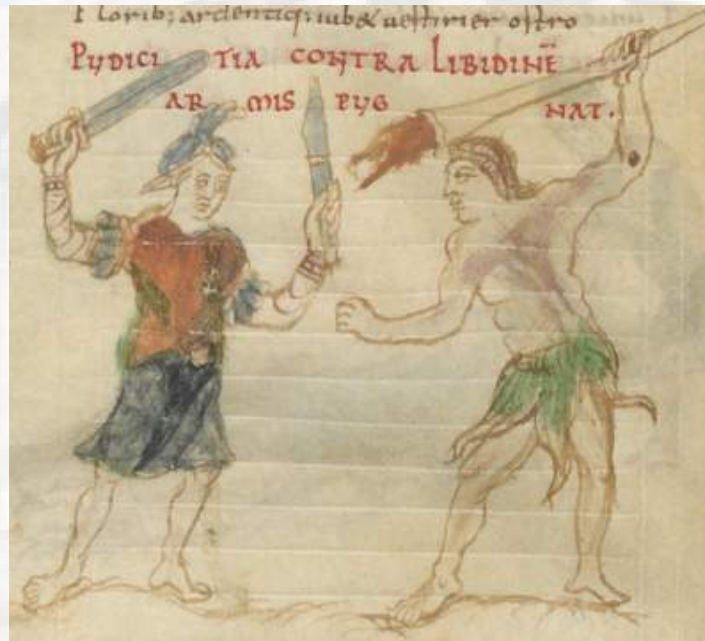 Floribus ardentiq; iub& uestirier ostro
PUDICITIA CONTRA LIBIDINĒ
ARMIS PUGNAT.